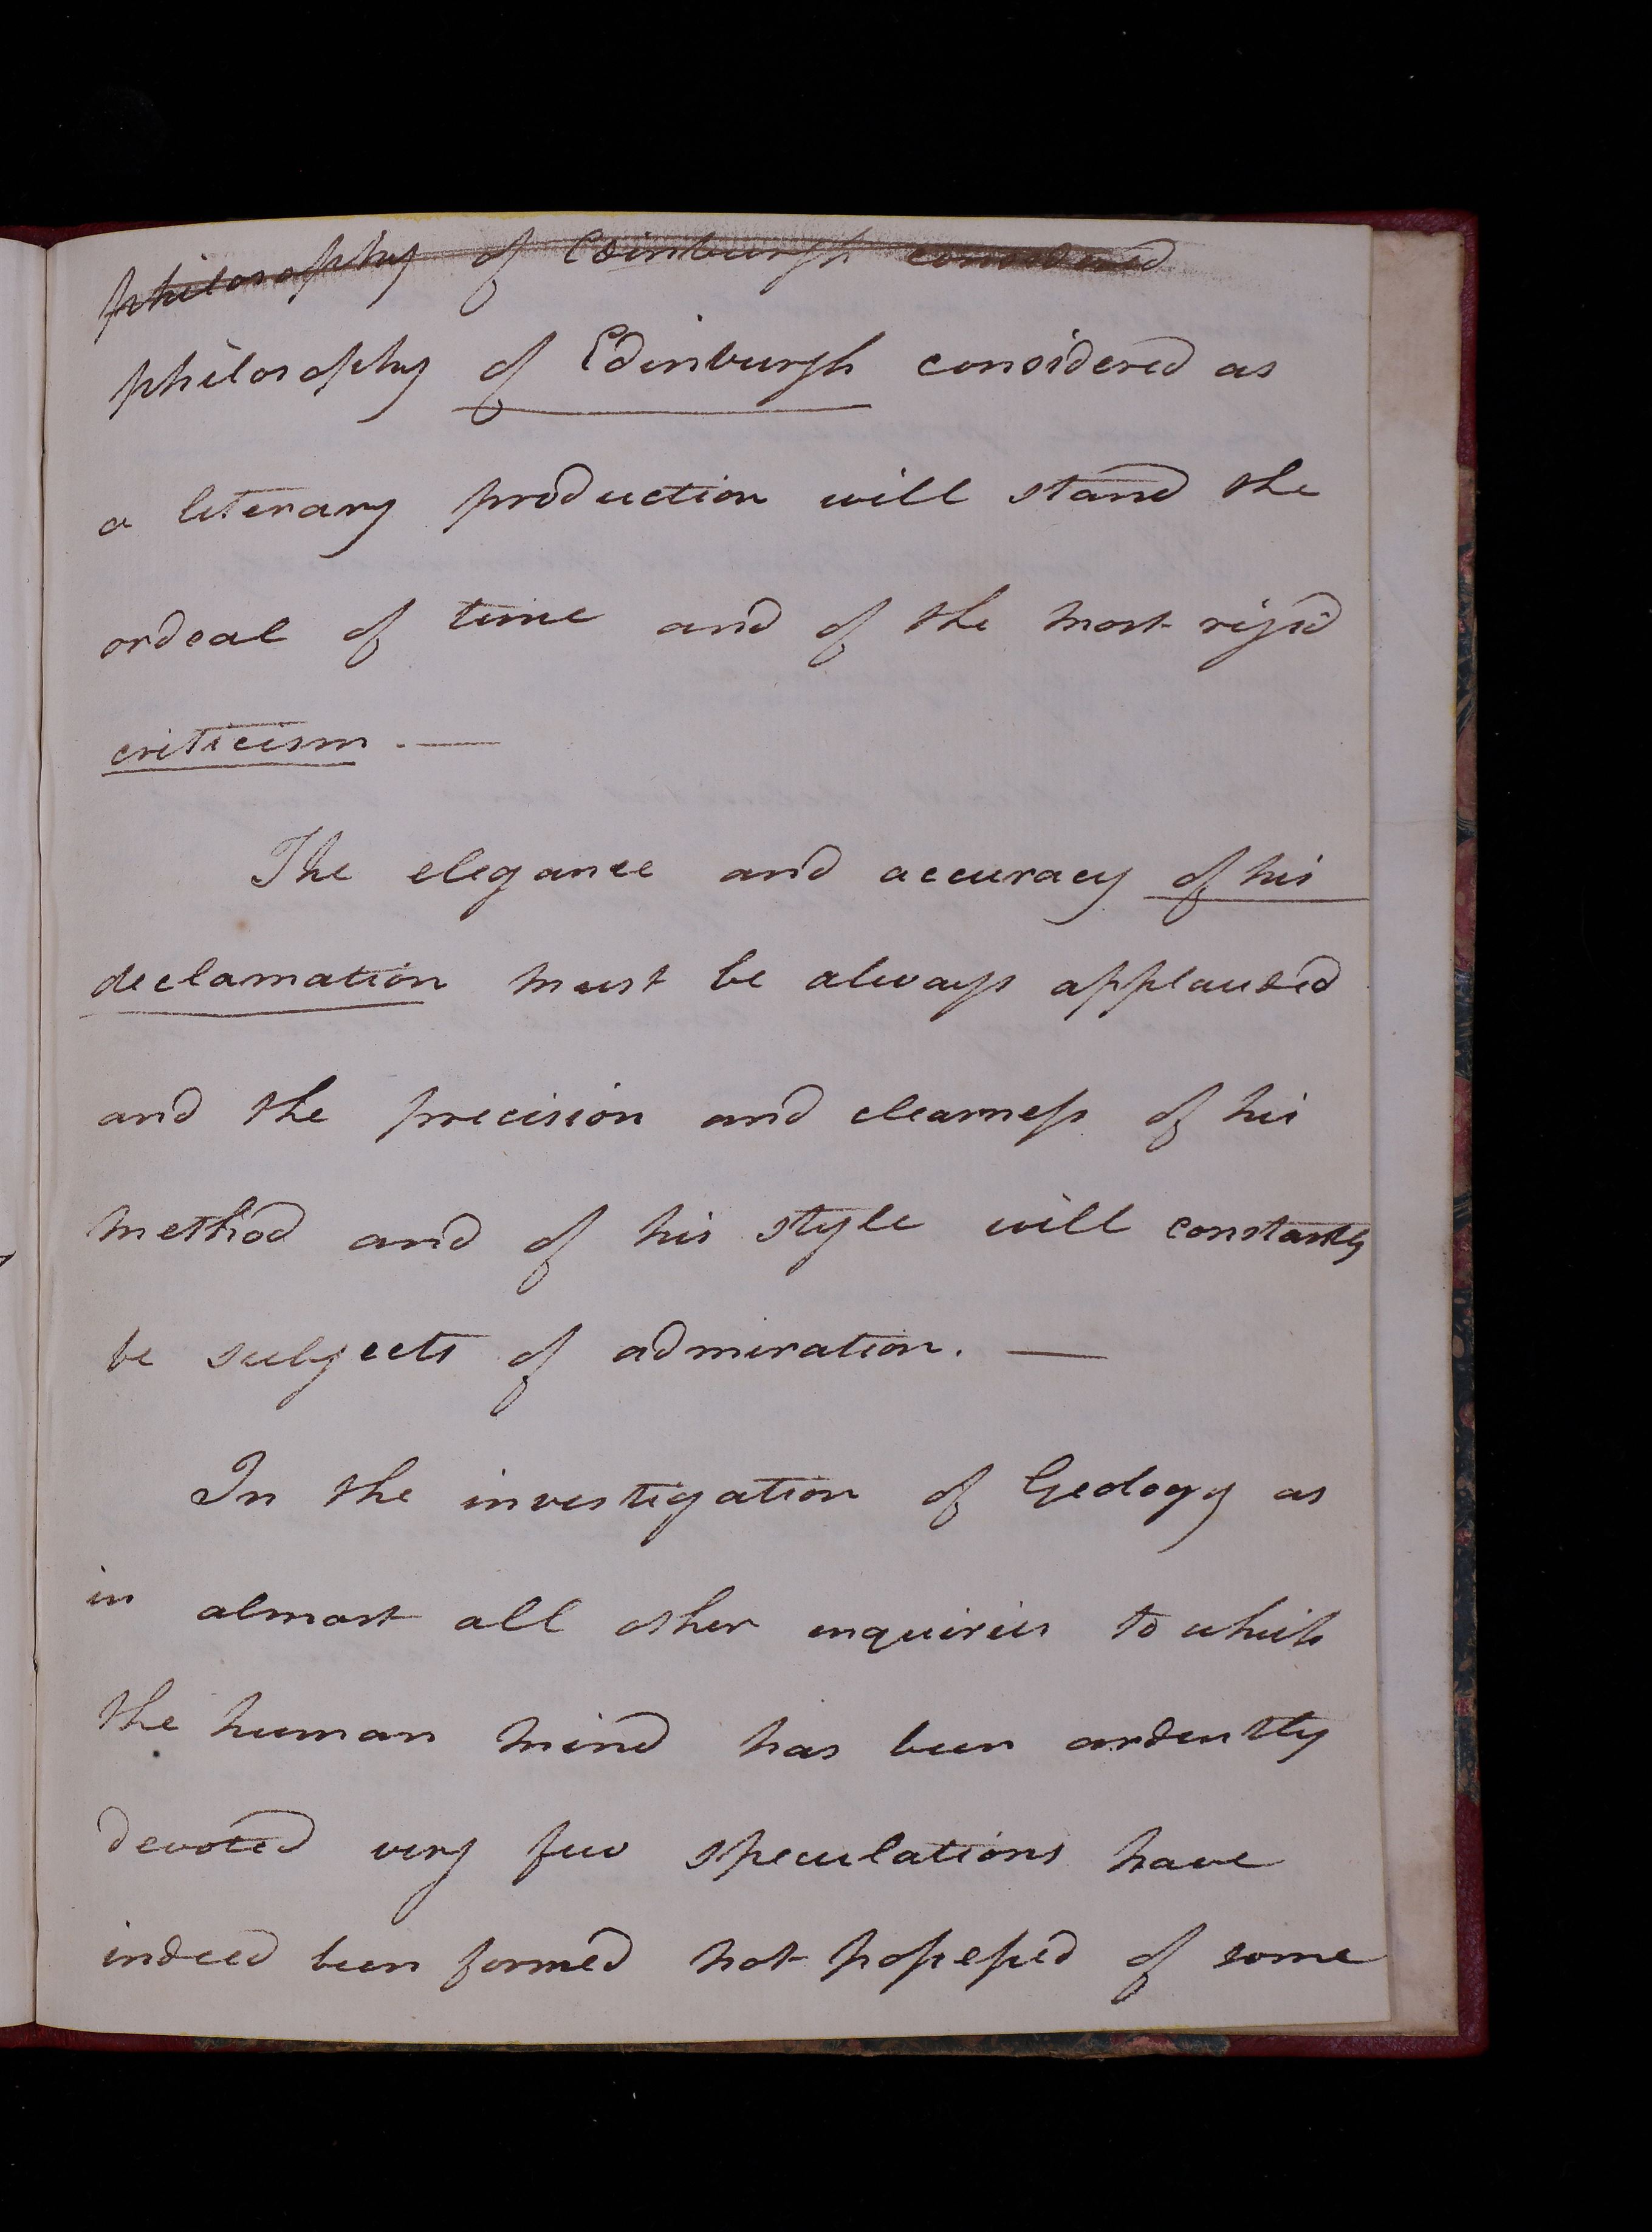 philosophy of Edinburgh considered
philosophy of Edinburgh considered as
a literary production will stand the
ordeal of time and of the most rigid
criticism. —
The elegance and accuracy of his
declamation must be always applauded
and the precision and clearness of his
method and of his style will constantly
be subjects of admiration. —
In the investigation of Geology as
in almost all other enquiries to which
the human mind has been ardently
devoted very few speculations have
indeed been formed not possessed of some